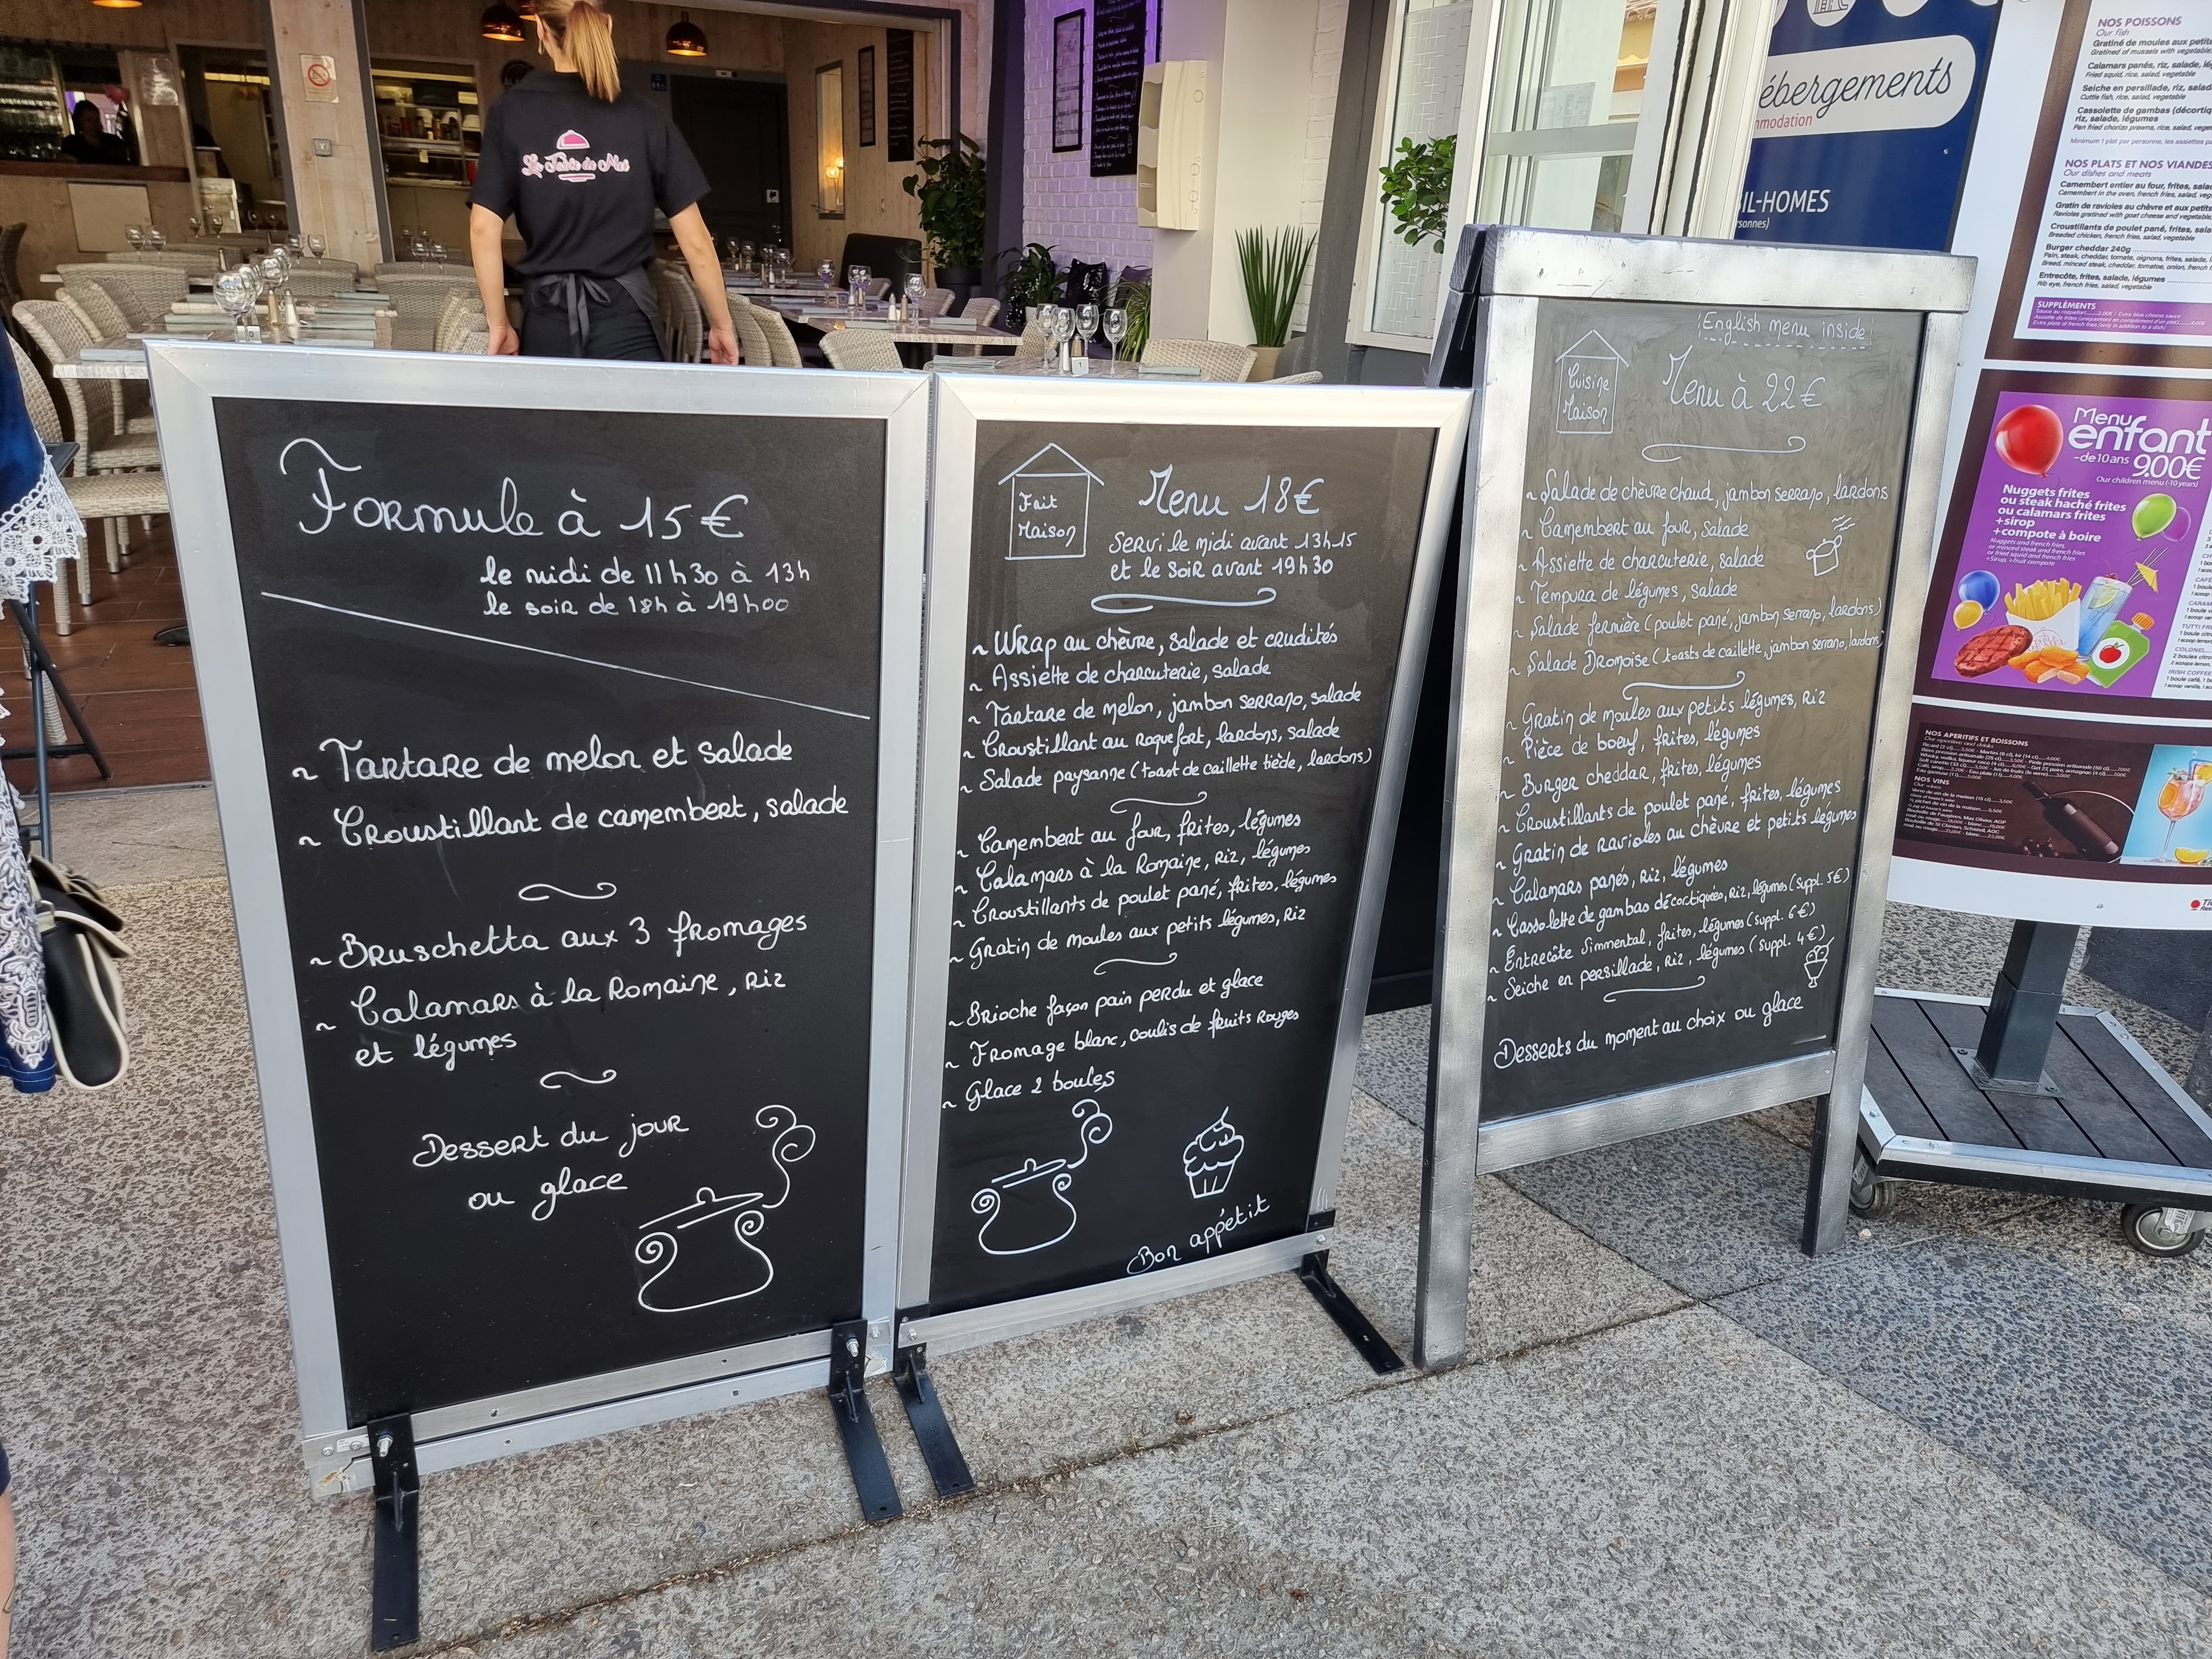 La Table de Mat
Formule à 15€
le midi de 11h30 à 13h
le soir de 18h à 19h00
~ Tartare de melon et salade
~ Croustillant de camembert, salade
~ Bruschetta aux 3 fromages
~ Calamars à la Romaine, riz
et légumes
Dessert du jour
ou glace
Fait
Maison
Menu 18€
Servi le midi avant 13h15
et le soir avant 19h30
~ Wrap au chèvre, salade et crudités
~ Assiette de charcuterie, salade
~ Tartare de melon, jambon serrano, salade
~ Croustillant au roquefort, lardons, salade
~ Salade paysanne (toast de caillette tiède, lardons)
~ Camembert au four, frites, légumes
~ Calamars à la Romaine, riz, légumes
~ Croustillants de poulet pané, frites, légumes
~ Gratin de moules aux petits légumes, riz
~ Brioche façon pain perdu et glace
~ Fromage blanc, coulis de fruits rouges
~ Glace 2 boules
Bon appétit
!English menu inside!
Cuisine
Maison
Menu à 22€
~ Salade de chèvre chaud, jambon serrano, lardons
~ Camembert au four, salade
~ Assiette de charcuterie, salade
~ Tempura de légumes, salade
~ Salade fermière (poulet pané, jambon serrano, lardons)
~ Salade Dromoise (toasts de caillette, jambon serrano, lardons)
~ Gratin de moules aux petits légumes, riz
~ Pièce de boeuf, frites, légumes
~ Burger cheddar, frites, légumes
~ Croustillants de poulet pané, frites, légumes
~ Gratin de ravioles au chèvre et petits légumes
~ Calamars panés, riz, légumes
~ Cassolette de gambas décortiquées, riz, légumes (suppl. 5€)
~ Entrecôte Simmental, frites, légumes (suppl. 6€)
~ Seiche en persillade, riz, légumes (suppl. 4€)
Desserts du moment au choix ou glace
ébergements
mmodation
BIL-HOMES
rsonnes)
NOS POISSONS
Our fish
Gratiné de moules aux petits
Gratined of mussels with vegetable
Calamars panés, riz, salade,
Fried squid, rice, salad, vegetable
Seiche en persillade, riz, salad
Cuttle fish, rice, salad, vegetable
Cassolette de gambas (décortiq
riz, salade, légumes
Pan fried chorizo prawns, rice, salad,
Minimum 1 plat par personne, les assiettes
NOS PLATS ET NOS VIANDES
Our dishes and meats
Camembert entier au four, frites, salad
Camembert in the oven, french fries, salad,
Gratin de ravioles au chèvre et aux petits
Ravioles gratined with goat cheese and vegetable
Croustillants de poulet pané, frites,
Breaded chicken, french fries, salad, vegetable
Burger cheddar 240g
Pain, steak, cheddar, tomate, oignons, frites, salade,
Bread, minced steak, cheddar, tomatoe, onion, french
Entrecôte, frites, salade, légumes
Rib eye, french fries, salad, vegetable
SUPPLÉMENTS
Menu
enfant
-de10ans 9.00€
Our children menu (-10 years)
Nuggets frites
ou steak haché frites
ou calamars frites
+sirop
+compote à boire
Nuggets and french fries,
or minced steak and french fries
or fried squid and french fries
+Sirup, +fruit compote
NOS APERITIFS ET BOISSONS
Our aperitive and drinks
NOS VINS